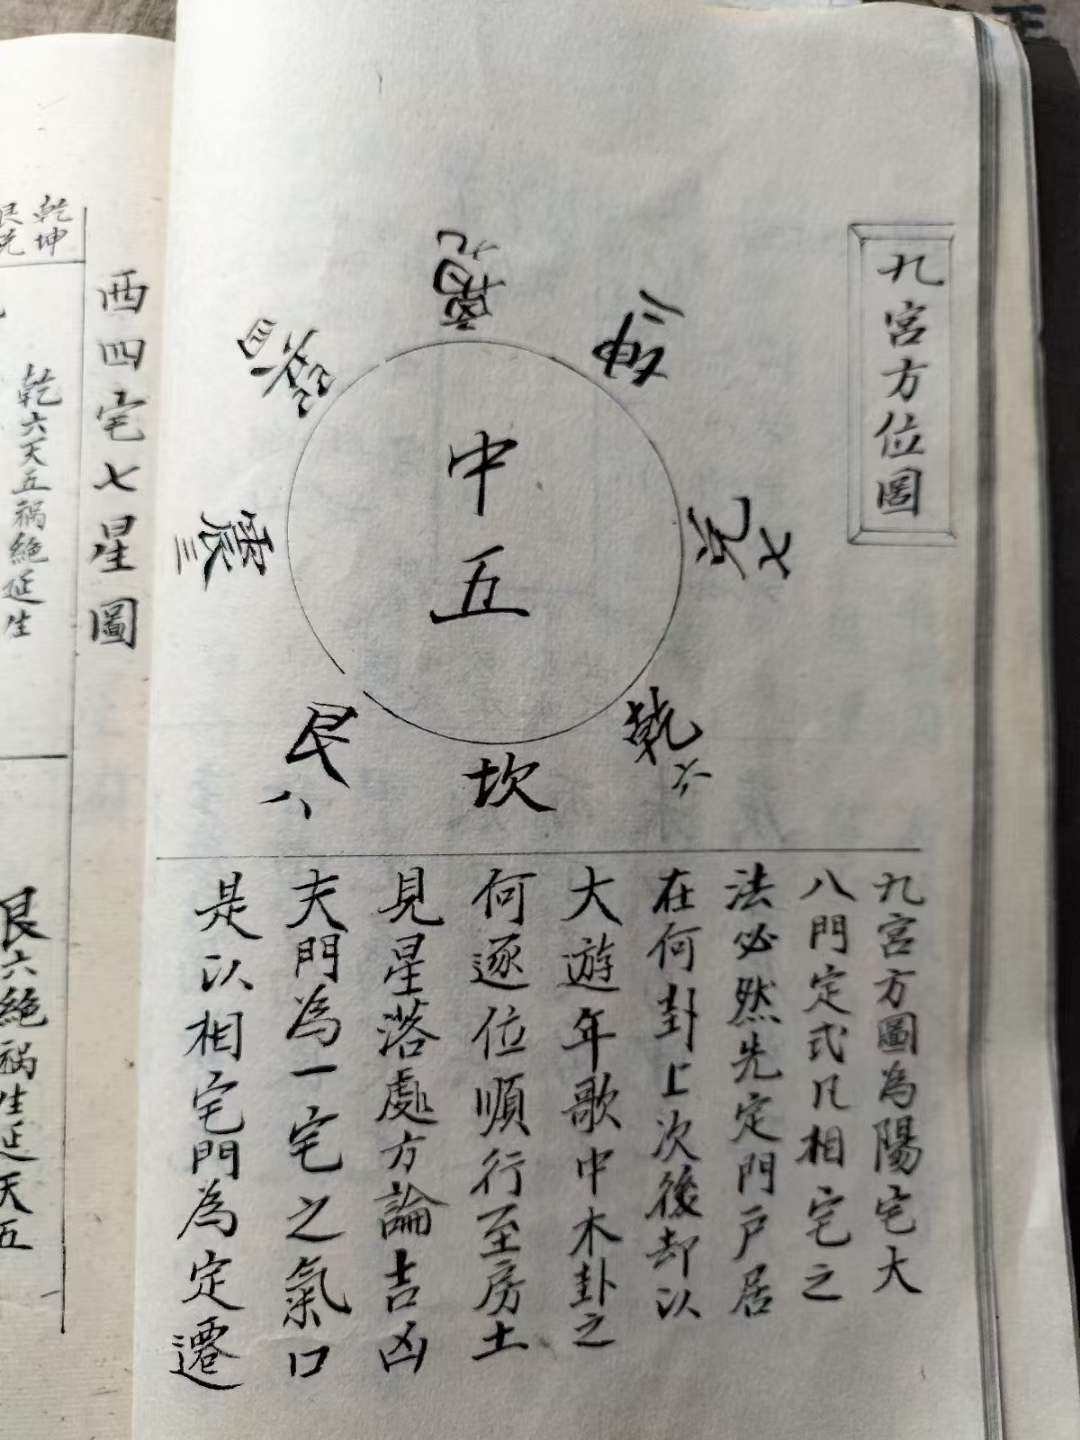 九宮方位圖
離九
坤二
兌七
乾六
坎
艮八
震三
巽四
中五
九宮方圖為陽宅大
八門定式凡相宅之
法必然先定門戶居
在何卦上次後却以
大遊年歌中木卦之
何逐位順行至房土
見星落處方論吉凶
夫門為一宅之氣口
是以相宅門為定遷
西四宅七星圖
乾坤
艮兌
乾六天五禍絕延生
艮六絕禍生延天五